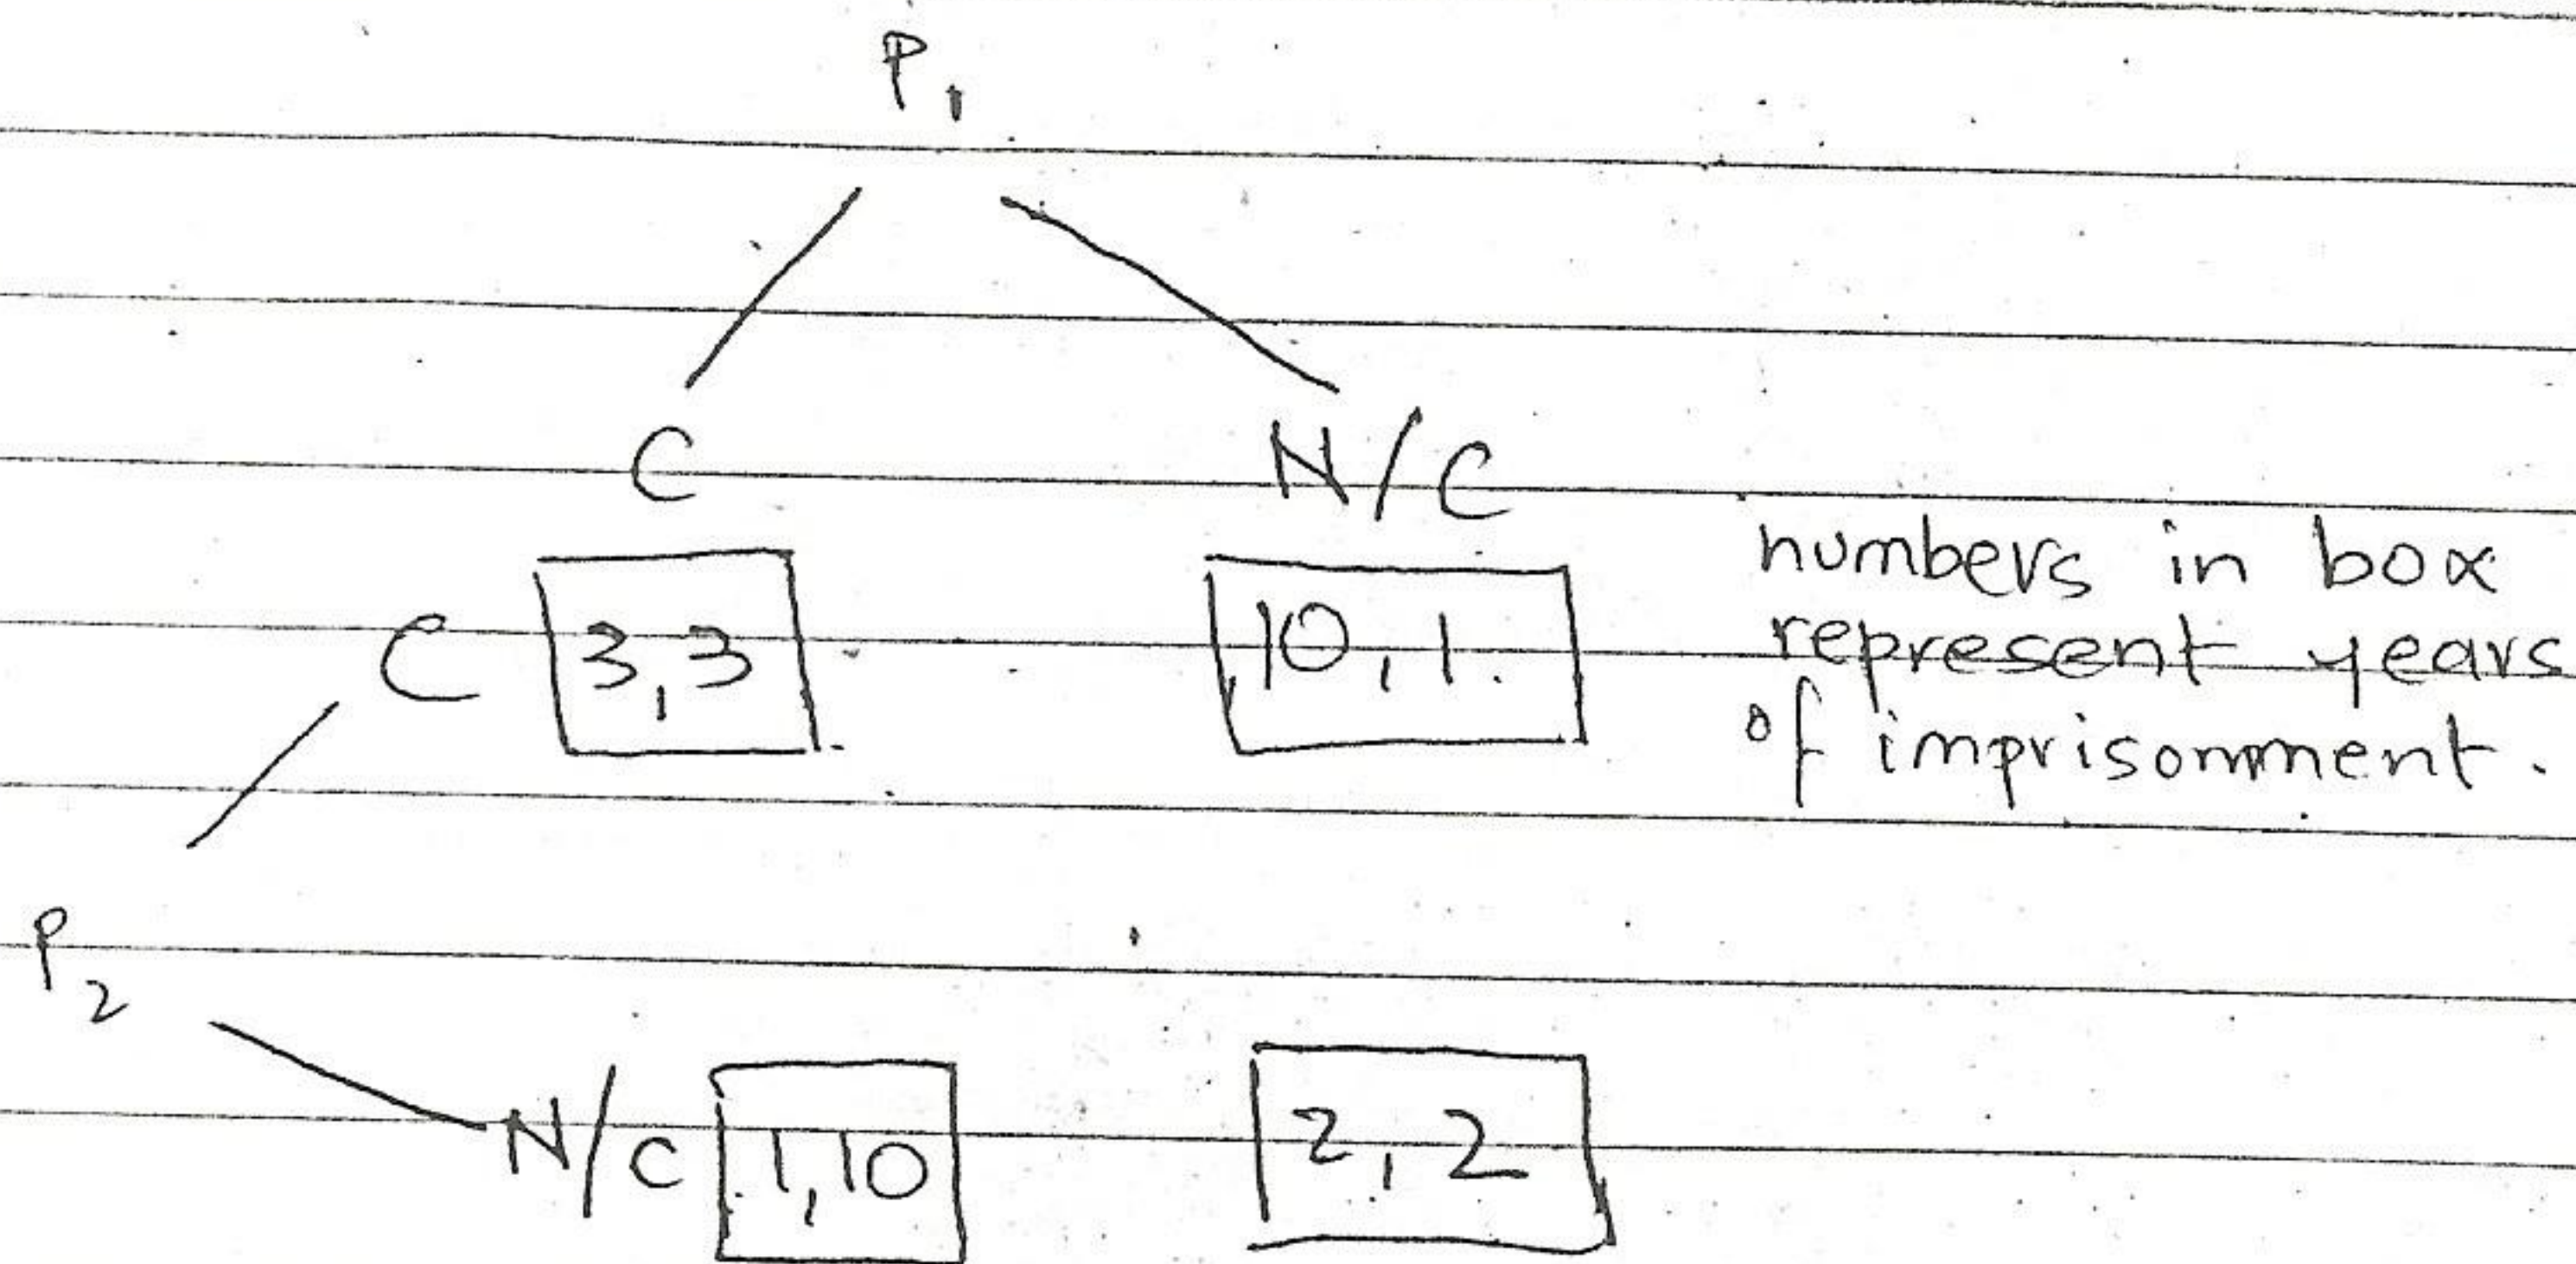 P1
C N/C
C 3,3 10,1. numbers in box
represent years
of imprisonment.
P2
N/C 1,10 2,2